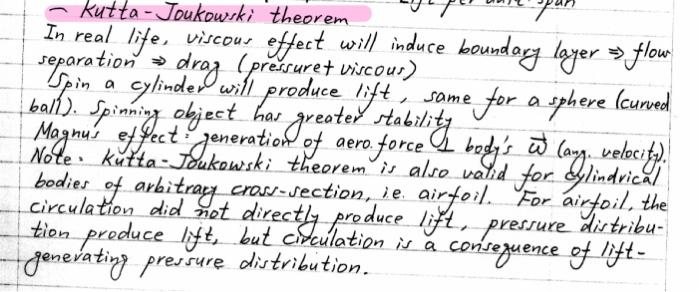 - Kutta-Joukowski theorem
In real life, viscous effect will induce boundary layer ⇒ flow
separation ⇒ drag (pressure + viscous)
Spin a cylinder will produce lift, same for a sphere (curved
ball). Spinning object has greater stability
Magnus effect: generation of aero. force ⊥ body's ω⃗ (ang. velocity).
Note. Kutta-Joukowski theorem is also valid for cylindrical
bodies of arbitrary cross-section, i.e. airfoil. For airfoil, the
circulation did not directly produce lift, pressure distribu-
tion produce lift, but circulation is a consequence of lift-
generating pressure distribution.